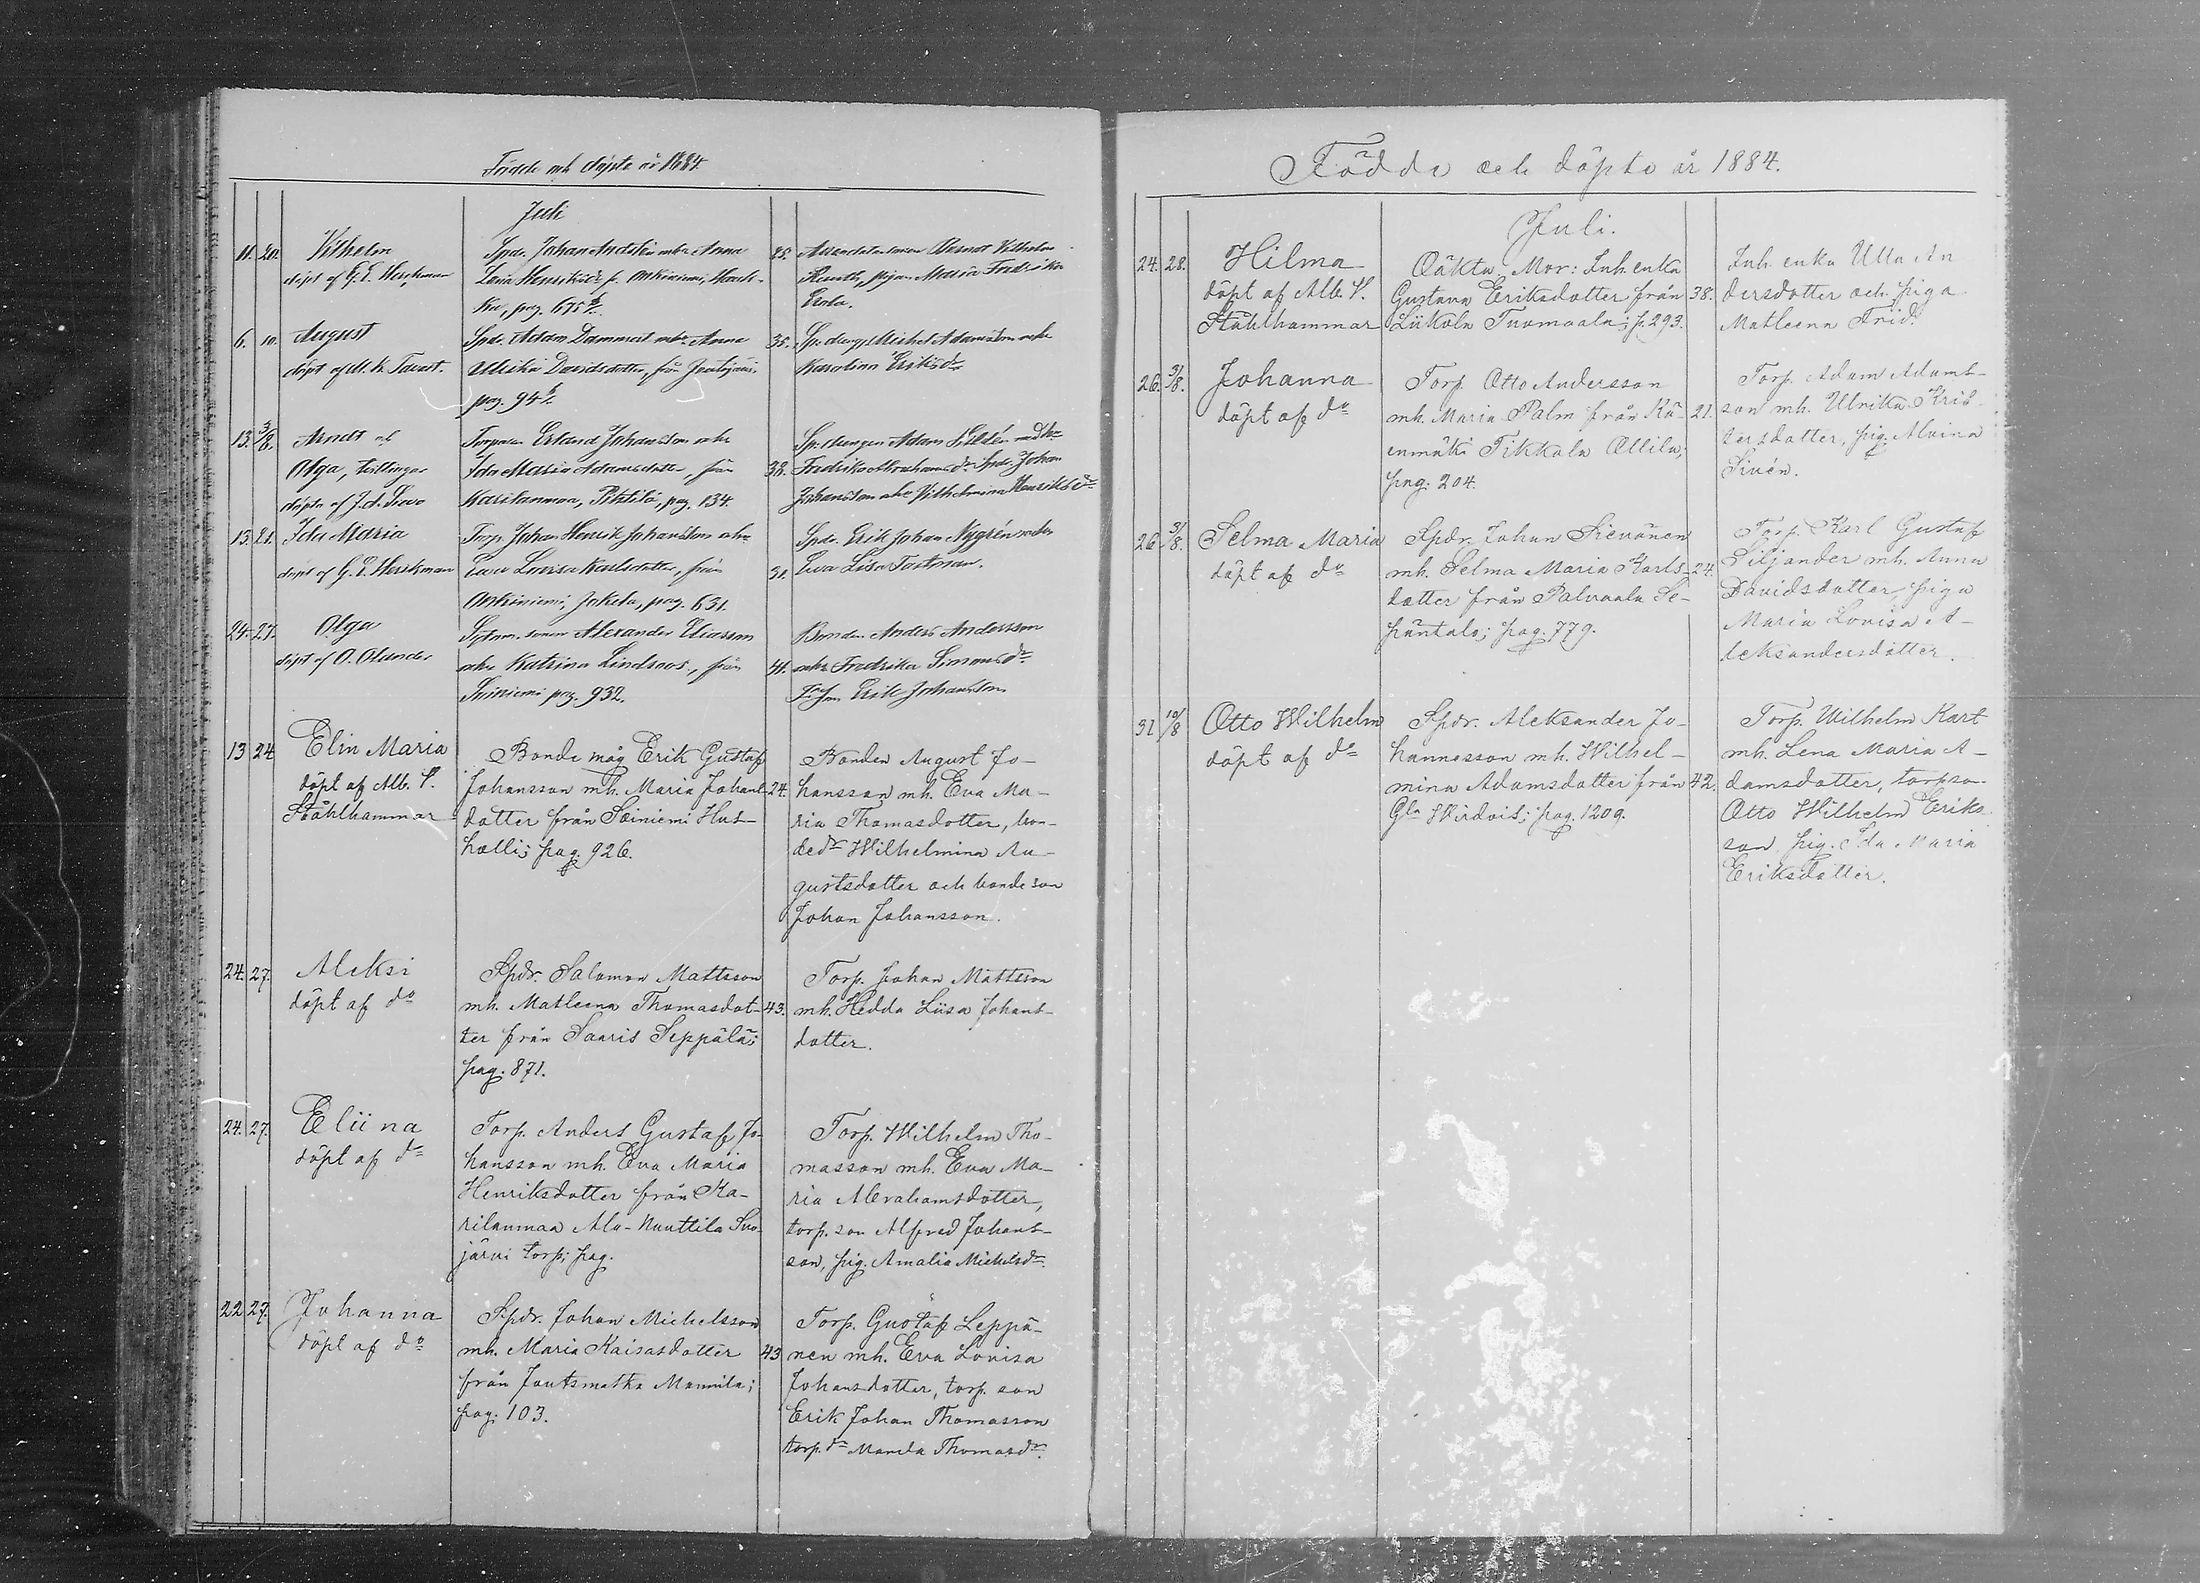 Födde och döpte år 1884.
Juli
11. 20. Vilhelm
döpt af G. E. Hersckman
Spdr. Johan mhu Anna
Lena Henriksdr fr. Ankiniemi,
pag. 675
25. Vilhelm
pigan Maria Fredrika
6. 10. August
döpt af
Spdr. Adam Dammert mhu Anna
Ulrika Davidsdotter, från
pag. 94
35. Sp. dreng Michel Adamsson mhu
Karolina Eriksdr
13. 3/8. Arndt och
Olga, tvillingar
döpta af J. A.
Torparen Erland Johansson mhu
Ida Maria Adamsdotter, från
Karilanmaa, pag. 134.
38. Sp. drengen Adam med hu
Fredrika Abrahamsdr Spdr. Johan
Johansson mhu Vilhelmina Henriksdr
13. 21. Ida Maria
döpt af G. E. Hersckman
Torp. Johan Henrik Johansson mhu
Eva Lovisa Karlsdotter, från
Ankiniemi, Jokela, pag. 631.
31. Spdr. Erik Johan Nygrén mhu
Eva Lisa
24. 27. Olga
döpt af O. Olander
sonen Alexander Eliasson
mhu Katrina Lindroos, från
Siiniemi pag. 932.
41. Bonden Anders Andersson
mhu Fredrika Simonsdr
Erik Johansson
13 24 Elin Maria
döpt af Alb. V.
Ståhlhammar
Bonde måg Erik Gustaf
Johansson mh. Maria Johans-
dotter från Säiniemi Hut-
halli; pag. 926.
24. Bonden August Jo-
hansson mh. Eva Ma-
ria Thomasdotter, bon-
dedr Wilhelmina Au-
gustsdotter och bonde son
Johan Johansson.
24. 27. Aleksi
döpt af do
Spdr. Salomon Mattsson
mh. Matleena Thomasdot-
ter från Saaris Seppälä;
pag. 871.
43. Torp. Johan Mattsson
mh. Hedda Liisa Johans-
dotter.
24. 27. Eliina
döpt af do
Torp. Anders Gustaf Jo-
hansson mh. Eva Maria
Henriksdotter från Ka-
rilanmaa Ala-Nuuttila Suo-
järvi torp; pag.
Torp. Wilhelm Tho-
masson mh. Eva Ma-
ria Abrahamsdotter,
torp. son Alfred Johans-
son, pig. Amalia Michelsdr
22 27. Johanna
döpt af do
Spdr. Johan Michelsson
mh. Maria Kaisasdotter
från Joutsmatka Mannila;
pag. 103.
43 Torp. Gustaf Leppä-
nen mh. Eva Lovisa
Johansdotter, torp. son
Erik Johan Thomasson
torp. dr Manda Thomasdr
Födde och döpte år 1884.
Juli.
24. 28. Hilma
döpt af Alb. V.
Ståhlhammar
Oäkta Mor: Inh. enka
Gustava Eriksdotter från
Liikola Tuomaala; p. 293.
38. Inh. enka Ulla An
dersdotter och piga
Matleena Frid.
26. 3/8. Johanna
döpt af do
Torp. Otto Andersson
mh. Maria Palm från Kä-
enmäki Tikkala Ollila;
pag. 204.
21. Torp. Adam Adams-
son mh. Ulrika Kris-
tersdotter, pig. Alvina
Sivén.
26. 3/8. Selma Maria
döpt af do
Spdr. Johan Sievänen
mh. Selma Maria Karls-
dotter från Palvaala Se-
päntalo; pag. 779.
24. Torp. Karl Gustaf
Siljander mh. Anna
Davidsdotter, piga
Maria Lovisa A-
leksandersdotter.
31 10/8 Otto Wilhelm
döpt af do
Spdr. Aleksander Jo-
hannesson mh. Wilhel-
mina Adamsdotter från
Gla Wirdois; pag. 1209.
42. Torp. Wilhelm Kart
mh. Lena Maria A-
damsdotter, torp so
Otto Wilhelm Eriks
son pig. Ida Maria
Eriksdotter.